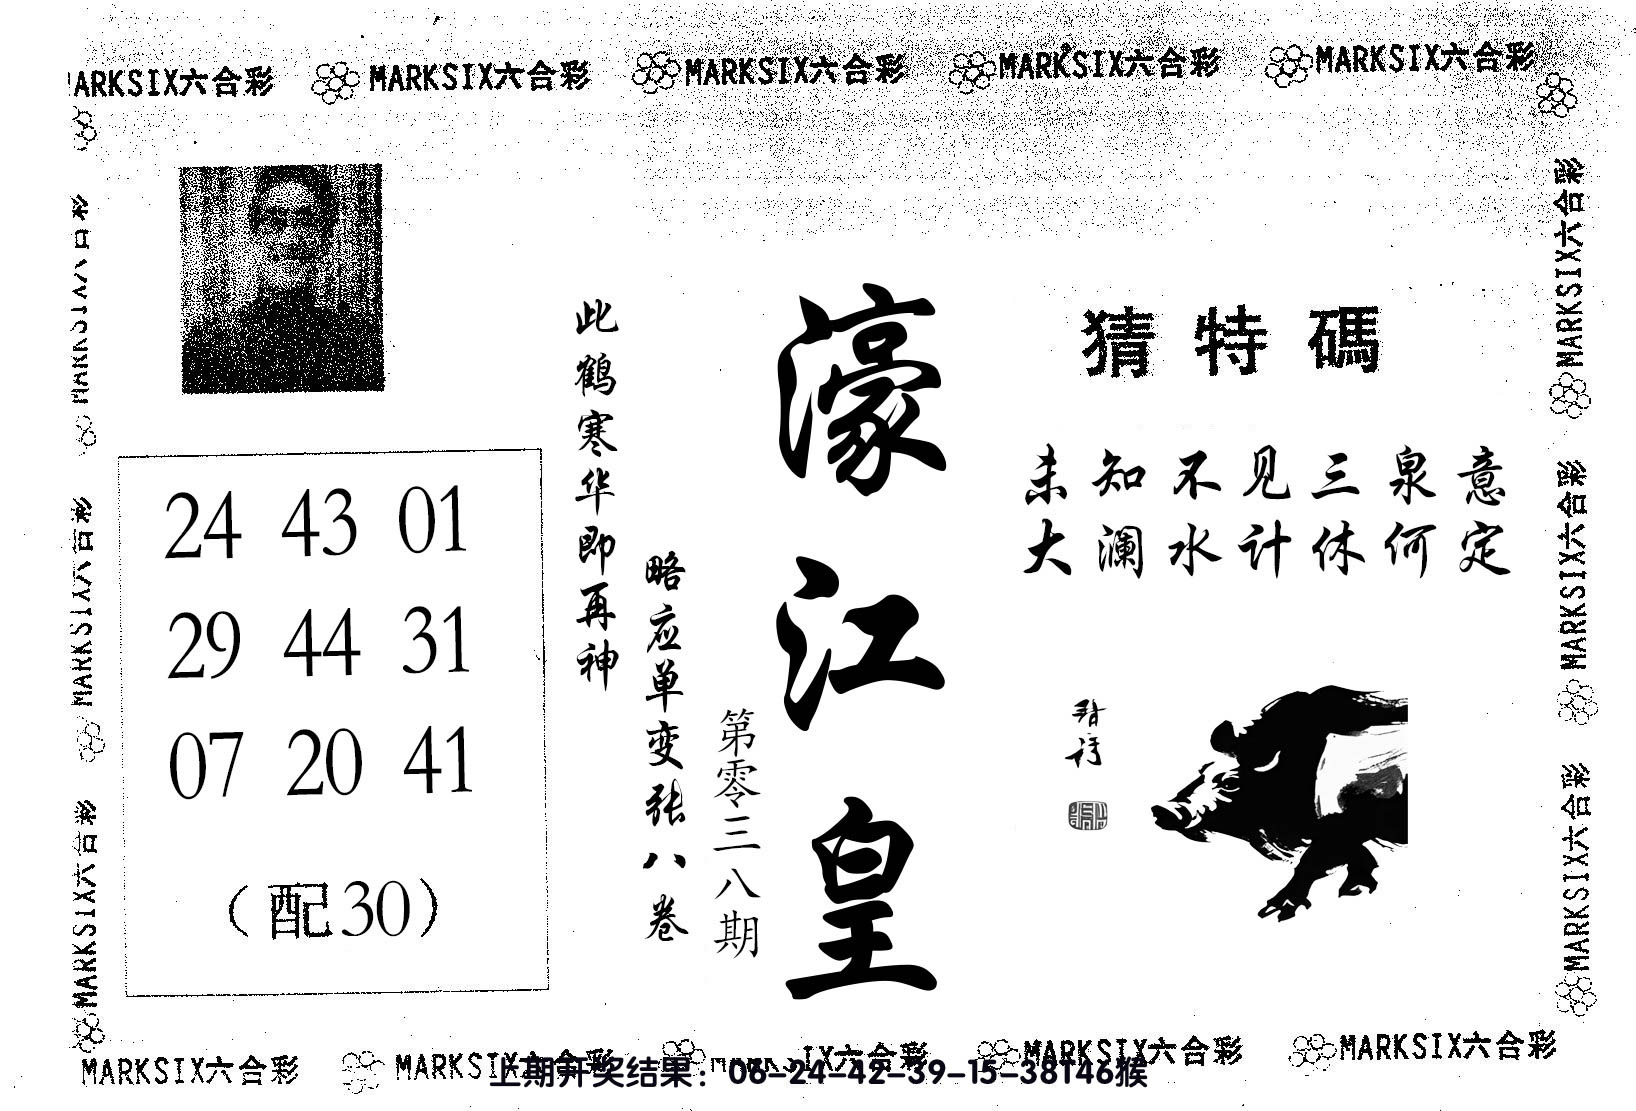 MARKSIX六合彩 MARKSIX六合彩 MARKSIX六合彩 MARKSIX六合彩 MARKSIX六合彩
猜特碼
未知不见三泉意
大澜水计休何定
濠江皇
第零三八期
略应单变张八卷
此鹤寒华即再神
24 43 01
29 44 31
07 20 41
(配30)
MARKSIX六合彩
MARKSIX六合彩
MARKSIX六合彩
MARKSIX六合彩
MARKSIX六合彩
MARKSIX六合彩
MARKSIX六合彩 MARKSIX六合彩 MARKSIX六合彩 MARKSIX六合彩
上期开奖结果：06-24-42-39-15-38T46猴